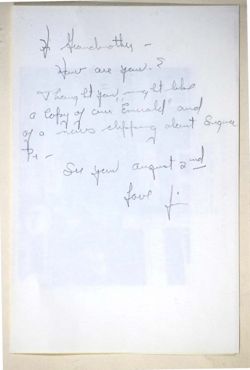 Hi Grandmother -
How are you?
Thought you might like
a copy of our Emerald and
of a news clipping about
See you August 2nd
Love Ji